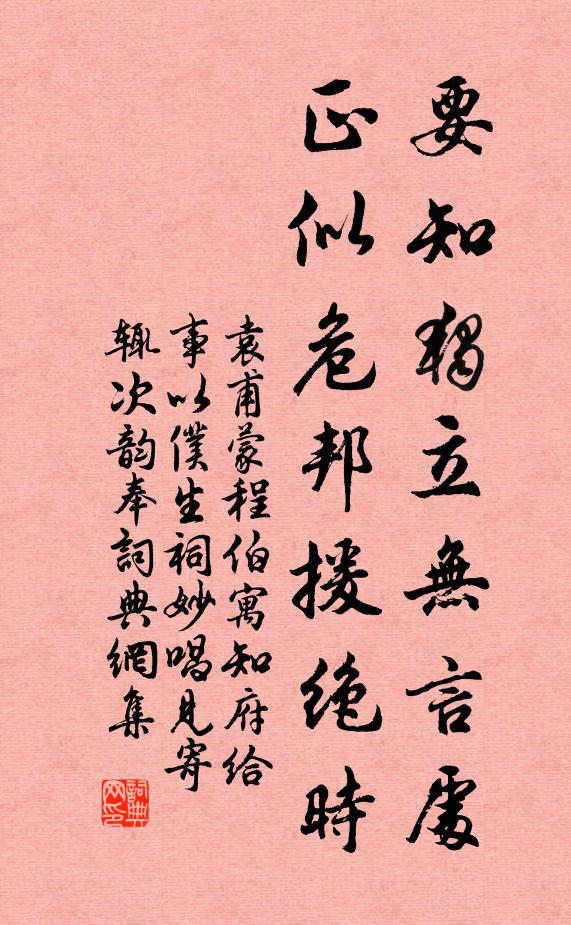 要知獨立無言處
正似危邦援絶時
袁甫蒙程伯寓知府給
事以僕生祠妙唱見寄
輒次韵奉詞典網集
詞典网印